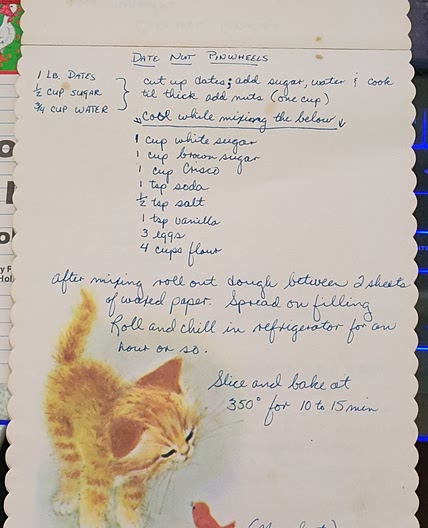 DATE NUT PINWHEELS
1 LB. DATES
½ CUP SUGAR
¾ CUP WATER
cut up dates; add sugar, water & cook
til thick add nuts (one cup)
Cool while mixing the below
1 cup white sugar
1 cup brown sugar
1 cup Crisco
1 tsp soda
½ tsp salt
1 tsp vanilla
3 eggs
4 cups flour
after mixing roll out dough between 2 sheets
of waxed paper. Spread on filling
Roll and chill in refrigerator for an
hour or so.
Slice and bake at
350° for 10 to 15 min